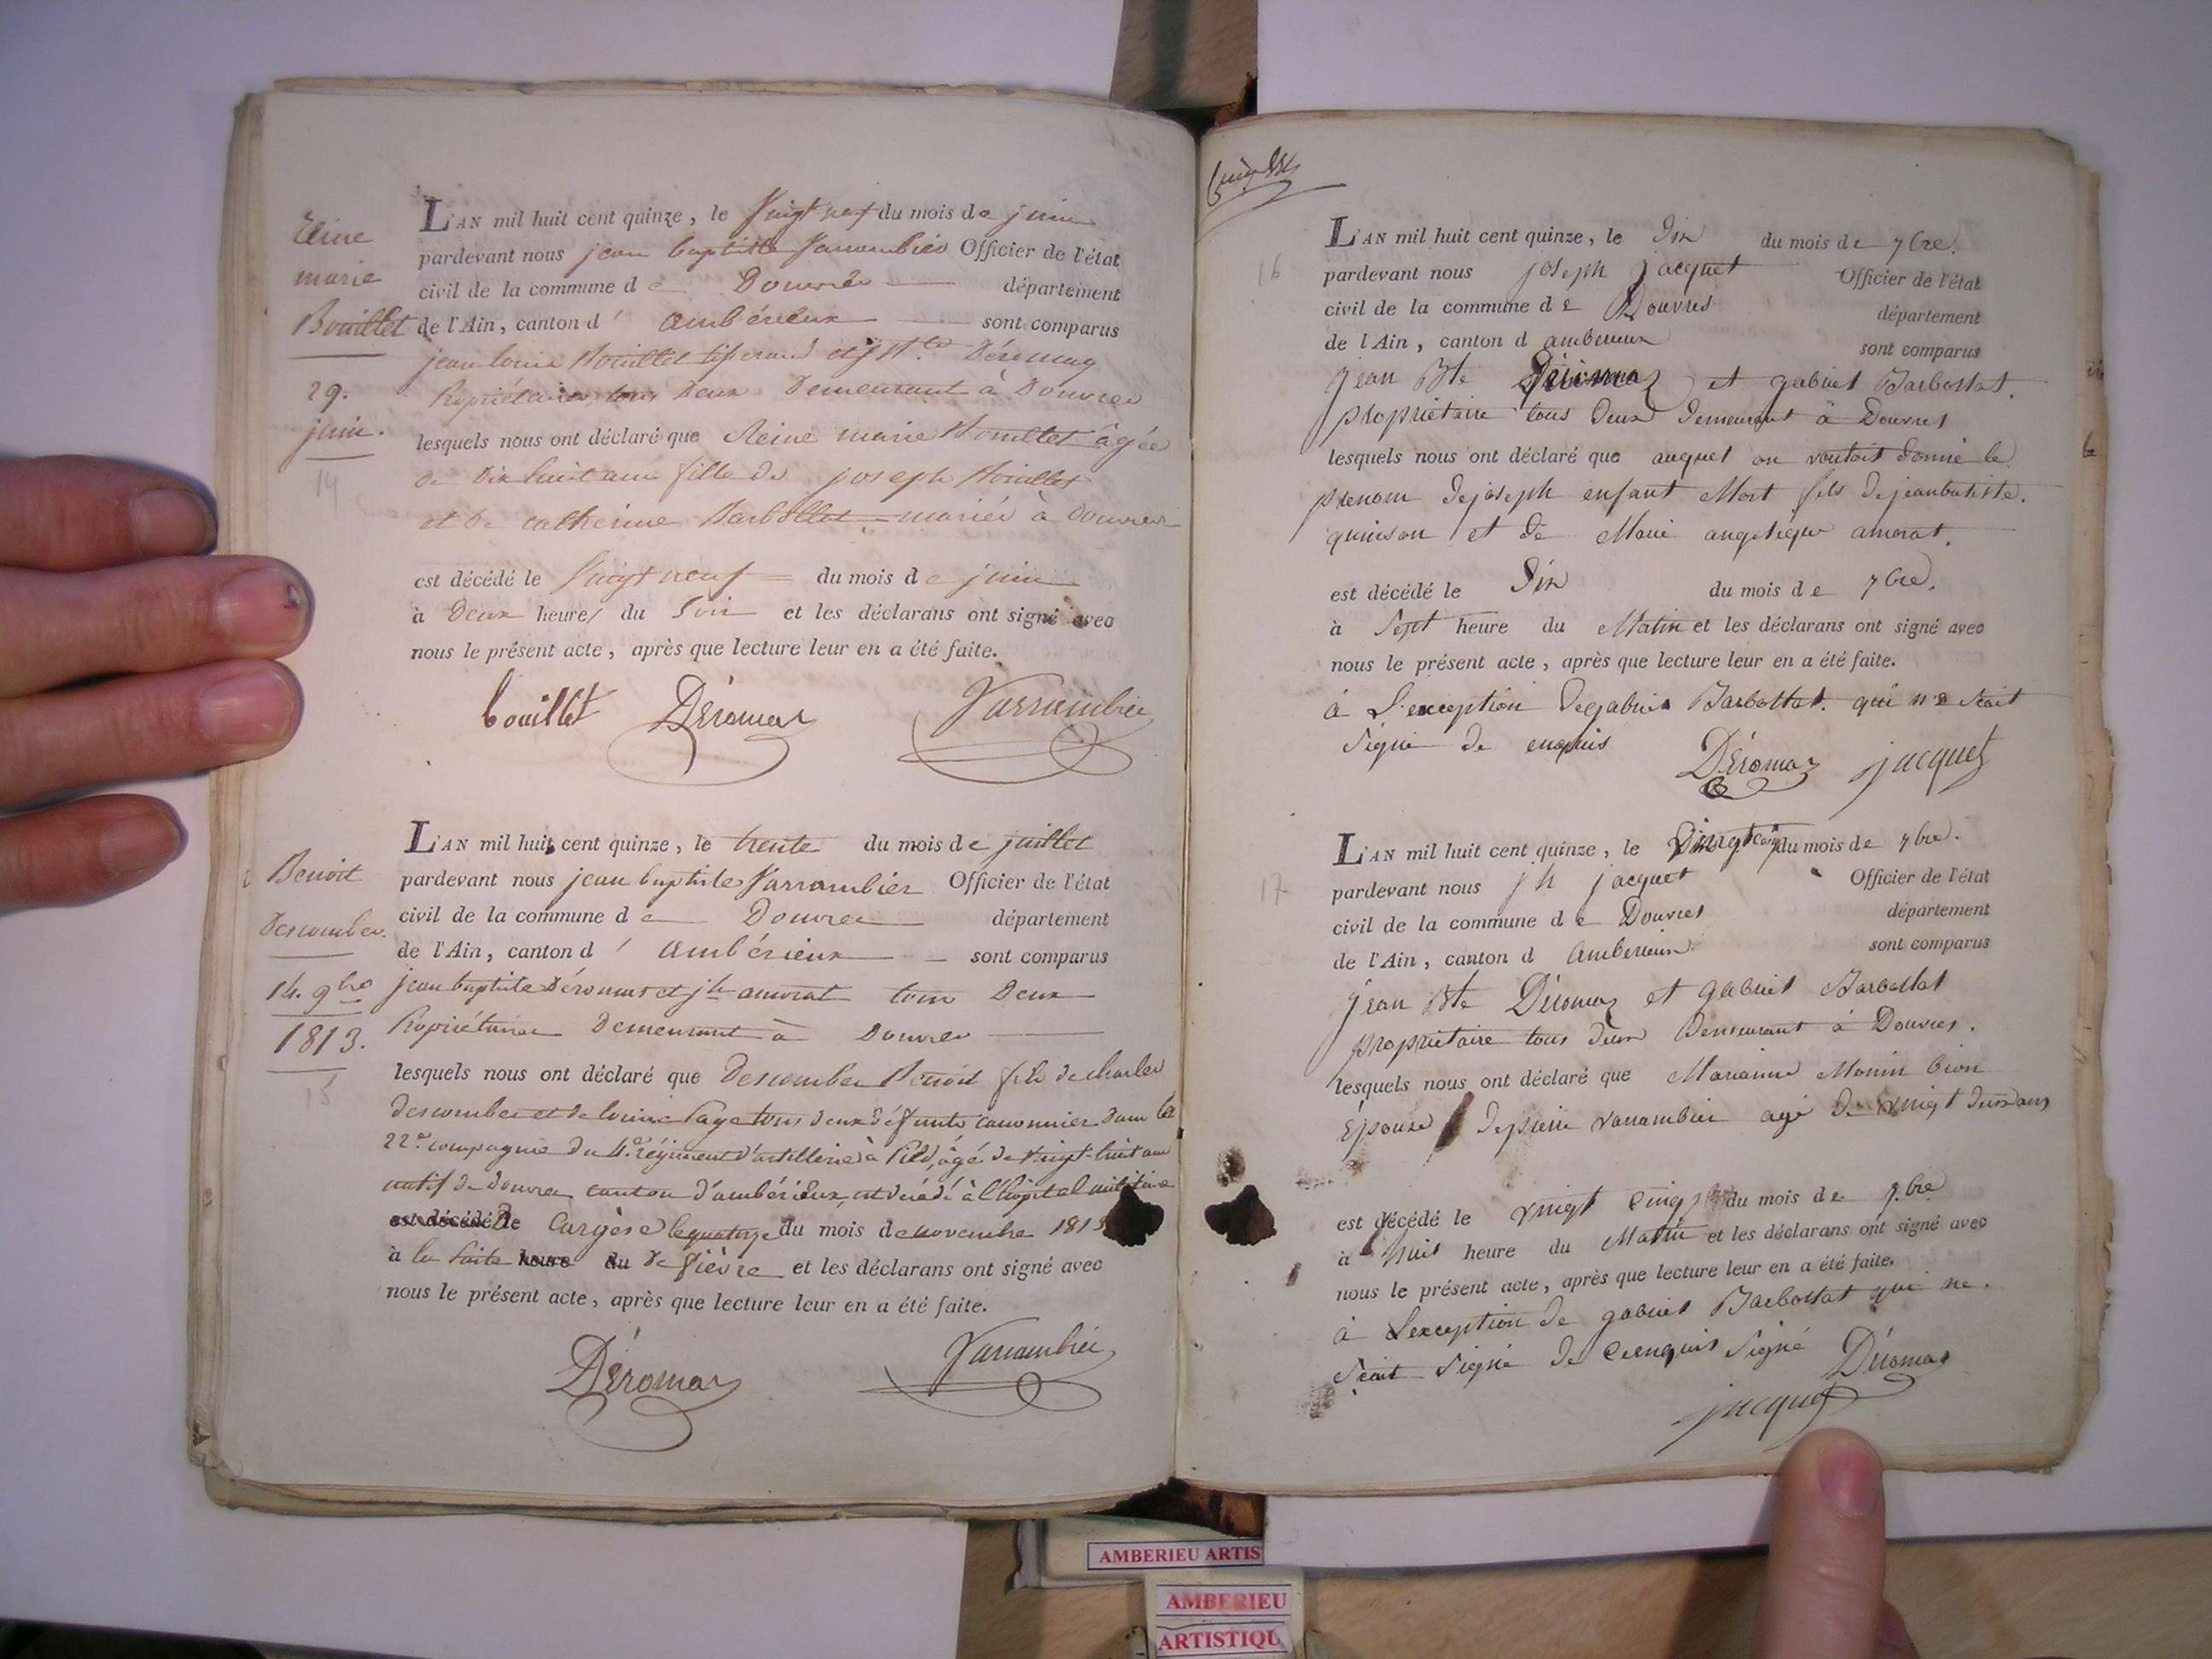 Reine
marie
Bouillet
29.
juin.
14
L'AN mil huit cent quinze, le Vingt neuf du mois de juin
pardevant nous jean baptiste Varrambier Officier de l'état
civil de la commune de Douvres département
de l'Ain, canton d' ambérieux sont comparus
jean louis Bouillet tisserand et j Bte Déromas
Propriétaires, tous Deux Demeurant à Douvres
lesquels nous ont déclaré que Reine marie Bouillet âgée
de Dix huit ans fille de joseph Bouillet
et de catherine Barbollat mariés à Douvres
est décédé le Vingt neuf du mois de juin
à Deux heures du Soir et les déclarans ont signé avec
nous le présent acte, après que lecture leur en a été faite.
bouillet Déromas Varrambier
Benoit
Descombes.
14. 9bre
1813.
15
L'AN mil huit cent quinze, le trente du mois de juillet
pardevant nous jean baptiste Varrambier Officier de l'état
civil de la commune de Douvres département
de l'Ain, canton d' ambérieux sont comparus
jean baptiste Déromas et jh amorat tous Deux
Propriétaires Demeurant à Douvres
lesquels nous ont déclaré que Descombes Benoit fils de charles
Descombes et de louise Page tous deux défunts canonnier dans la
22e compagnie du 4e régiment d'artillerie à Pied, âgé de Vingt-huit ans
natif de Douvres canton d'ambérieux, est décédé à l'hôpital militaire
est décédé De le quatorze du mois de novembre 1813
à la suite heure du de fièvre et les déclarans ont signé avec
nous le présent acte, après que lecture leur en a été faite.
Déromas Varrambier
16
L'AN mil huit cent quinze, le Dix du mois de 7bre.
pardevant nous joseph jacquet Officier de l'état
civil de la commune de Douvres département
de l'Ain, canton d amberieux sont comparus
jean Bte Déromaz et gabriel Barbollat.
propriétaire tous deux demeurant à Douvres
lesquels nous ont déclaré que auquel on voutoit donné le
prenom de joseph enfant Mort fils de jean batiste.
quinson et de Marie angelique amorat.
est décédé le Dix du mois de 7bre.
à Sept heure du Matin et les déclarans ont signé avec
nous le présent acte, après que lecture leur en a été faite.
à L'exception de gabriel Barbollat. qui ne Scait
Signé de enquis
Déromaz jacquet
17
L'AN mil huit cent quinze, le Vingt cinq du mois de 7bre.
pardevant nous jh jacquet Officier de l'état
civil de la commune de Douvres département
de l'Ain, canton d Amberieux sont comparus
jean Bte Déromaz et gabriel Barbollat
propriétaire tous deux Demeurant à Douvres.
lesquels nous ont déclaré que Marianne Monin bion
Épouse de pierre varambier agé de vingt deux ans
est décédé le vingt cinq du mois de 7.bre
à huit heure du Matin et les déclarans ont signé avec
nous le présent acte, après que lecture leur en a été faite.
à L'exception de gabriel Barbollat qui ne.
Scait Signé de Ce enquis Signé Déromas
jacquet
AMBERIEU ARTIS
AMBERIEU
ARTISTIQU